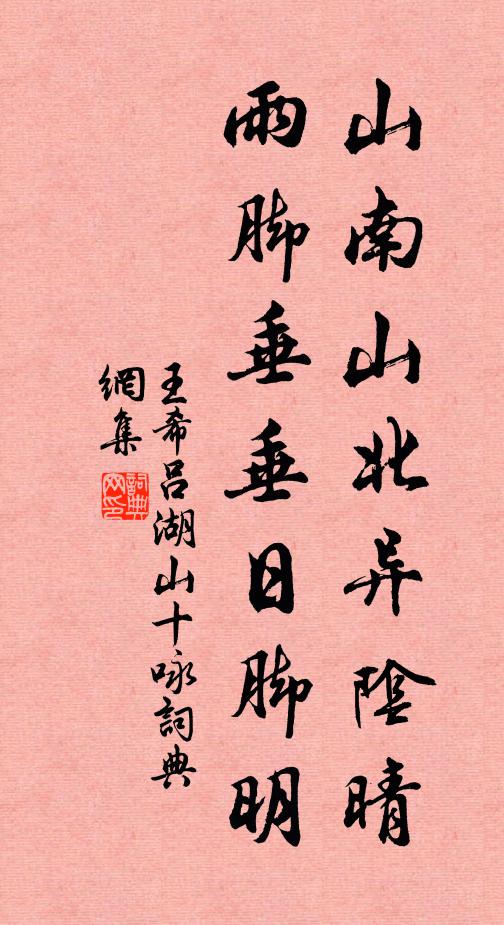 山南山北异陰晴
雨脚垂垂日脚明
王希吕湖山十咏詞典
網集
詞典
网印